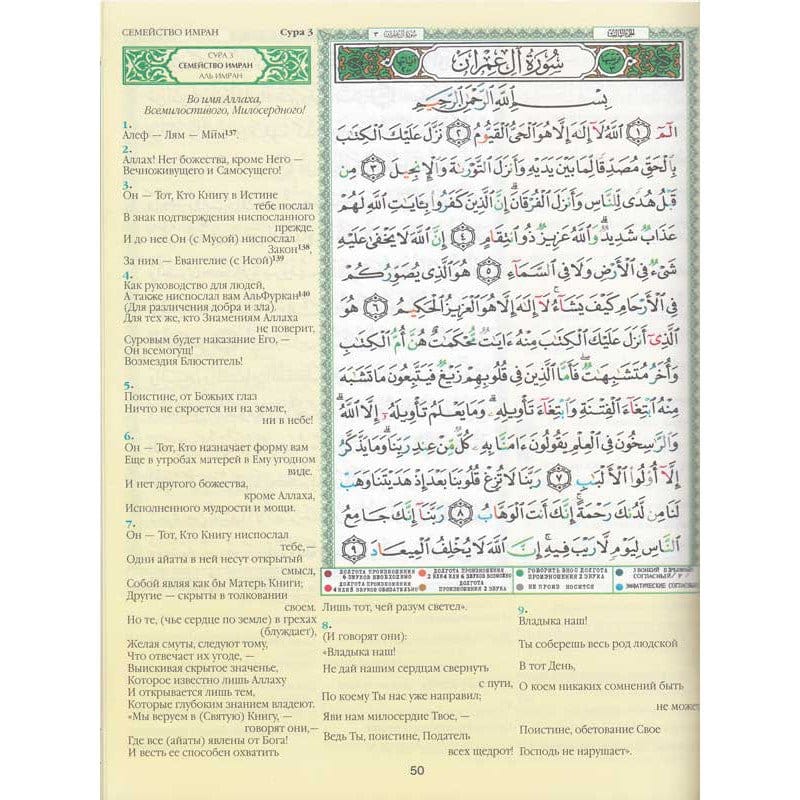 СЕМЕЙСТВО ИМРАН Сура 3
СУРА 3
СЕМЕЙСТВО ИМРАН
АЛЬ ИМРАН
Во имя Аллаха,
Всемилостивого, Милосердного!
1.
Алеф — Лям — Мим137.
2.
Аллах! Нет божества, кроме Него —
Вечноживущего и Самосущего!
3.
Он — Тот, Кто Книгу в Истине
тебе послал
В знак подтверждения ниспосланного
прежде.
И до нее Он (с Мусой) ниспослал
Закон138,
За ним — Евангелие (с Исой)139
4.
Как руководство для людей,
А также ниспослал вам АльФуркан140
(Для различения добра и зла).
Для тех же, кто Знамениям Аллаха
не поверит,
Суровым будет наказание Его, —
Он всемогущ!
Возмездия Блюститель!
5.
Поистине, от Божьих глаз
Ничто не скроется ни на земле,
ни в небе!
6.
Он — Тот, Кто назначает форму вам
Еще в утробах матерей в Ему угодном
виде.
И нет другого божества,
кроме Аллаха,
Исполненного мудрости и мощи.
7.
Он — Тот, Кто Книгу ниспослал
тебе,—
Одни айаты в ней несут открытый
смысл,
Собой являя как бы Матерь Книги;
Другие — скрыты в толковании
своем.
Но те, (чье сердце по земле) в грехах
(блуждает),
Желая смуты, следуют тому,
Что отвечает их угоде, —
Выискивая скрытое значенье,
Которое известно лишь Аллаху
И открывается лишь тем,
Которые глубоким знанием владеют.
«Мы веруем в (Святую) Книгу, —
говорят они,—
Где все (айаты) явлены от Бога!
И весть ее способен охватить
٣ سورة آل عمران الجزء الثالث
سُورَةُ آلِ عِمْرَانَ
بِسْمِ اللَّهِ الرَّحْمَٰنِ الرَّحِيمِ
الٓمٓ ١ ٱللَّهُ لَآ إِلَٰهَ إِلَّا هُوَ ٱلْحَىُّ ٱلْقَيُّومُ ٢ نَزَّلَ عَلَيْكَ ٱلْكِتَٰبَ
بِٱلْحَقِّ مُصَدِّقًا لِّمَا بَيْنَ يَدَيْهِ وَأَنزَلَ ٱلتَّوْرَىٰةَ وَٱلْإِنجِيلَ ٣ مِن
قَبْلُ هُدًى لِّلنَّاسِ وَأَنزَلَ ٱلْفُرْقَانَ إِنَّ ٱلَّذِينَ كَفَرُوا۟ بِـَٔايَٰتِ ٱللَّهِ لَهُمْ
عَذَابٌ شَدِيدٌ وَٱللَّهُ عَزِيزٌ ذُو ٱنتِقَامٍ ٤ إِنَّ ٱللَّهَ لَا يَخْفَىٰ عَلَيْهِ
شَىْءٌ فِى ٱلْأَرْضِ وَلَا فِى ٱلسَّمَآءِ ٥ هُوَ ٱلَّذِى يُصَوِّرُكُمْ
فِى ٱلْأَرْحَامِ كَيْفَ يَشَآءُ لَآ إِلَٰهَ إِلَّا هُوَ ٱلْعَزِيزُ ٱلْحَكِيمُ ٦ هُوَ
ٱلَّذِىٓ أَنزَلَ عَلَيْكَ ٱلْكِتَٰبَ مِنْهُ ءَايَٰتٌ مُّحْكَمَٰتٌ هُنَّ أُمُّ ٱلْكِتَٰبِ
وَأُخَرُ مُتَشَٰبِهَٰتٌ فَأَمَّا ٱلَّذِينَ فِى قُلُوبِهِمْ زَيْغٌ فَيَتَّبِعُونَ مَا تَشَٰبَهَ
مِنْهُ ٱبْتِغَآءَ ٱلْفِتْنَةِ وَٱبْتِغَآءَ تَأْوِيلِهِۦ وَمَا يَعْلَمُ تَأْوِيلَهُۥٓ إِلَّا ٱللَّهُ
وَٱلرَّٰسِخُونَ فِى ٱلْعِلْمِ يَقُولُونَ ءَامَنَّا بِهِۦ كُلٌّ مِّنْ عِندِ رَبِّنَا وَمَا يَذَّكَّرُ
إِلَّآ أُو۟لُوا۟ ٱلْأَلْبَٰبِ ٧ رَبَّنَا لَا تُزِغْ قُلُوبَنَا بَعْدَ إِذْ هَدَيْتَنَا وَهَبْ
لَنَا مِن لَّدُنكَ رَحْمَةً إِنَّكَ أَنتَ ٱلْوَهَّابُ ٨ رَبَّنَآ إِنَّكَ جَامِعُ
ٱلنَّاسِ لِيَوْمٍ لَّا رَيْبَ فِيهِ إِنَّ ٱللَّهَ لَا يُخْلِفُ ٱلْمِيعَادَ ٩
ДОЛГОТА ПРОИЗНОШЕНИЯ
6 ЗВУКОВ НЕОБХОДИМО
ДОЛГОТА ПРОИЗНОШЕНИЯ
4 ИЛИ 5 ЗВУКОВ ОБЯЗАТЕЛЬНО
ДОЛГОТА ПРОИЗНОШЕНИЯ
2 ИЛИ 4 ИЛИ 6 ЗВУКОВ ВОЗМОЖНО
ДОЛГОТА
ПРОИЗНОШЕНИЯ 2 ЗВУКА
ГОВОРИТЬ В НОС ДОЛГОТА
ПРОИЗНОШЕНИЯ 2 ЗВУКА
НЕ ПРОИЗНОСИТСЯ
Лишь тот, чей разум светел».
8.
(И говорят они):
«Владыка наш!
Не дай нашим сердцам свернуть
с пути,
По коему Ты нас уже направил;
Яви нам милосердие Твое, —
Ведь Ты, поистине, Податель
всех щедрот!
9.
Владыка наш!
Ты соберешь весь род людской
В тот День,
О коем никаких сомнений быть
не может
Поистине, обетование Свое
Господь не нарушает».
50